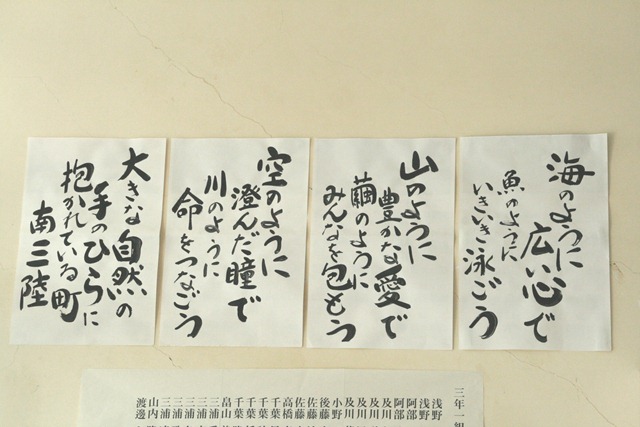 海のように
広い心で
魚のように
いきいき泳ごう
山のように
豊かな愛で
繭のように
みんなを包もう
空のように
澄んだ瞳で
川のように
命をつなごう
大きな自然の
手のひらに
抱かれている町
南三陸
三年一組
浅野
浅野
阿部
阿部
及川
及川
及川
及川
小野
後藤
佐藤
佐藤
高橋
千葉
千葉
千葉
畠山
三浦
三浦
三浦
三浦
山内
渡邊